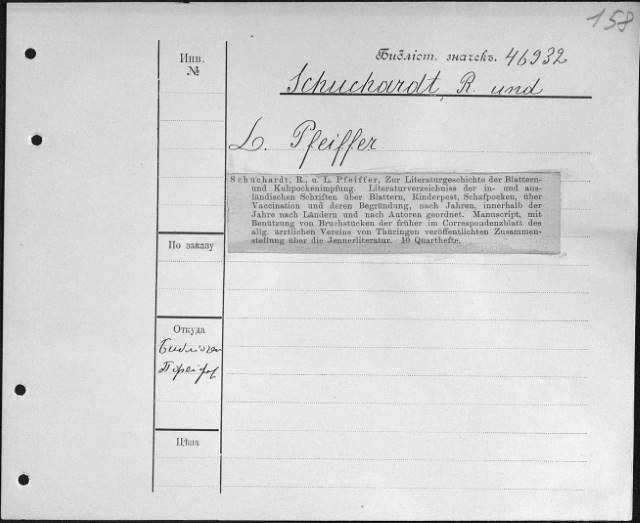 158
Инв.
№
Библіот. значекъ. 46932
Schuchardt, R. und
L. Pfeiffer.
Schuchardt, R., u. L. Pfeiffer, Zur Literaturgeschichte der Blattern-
und Kuhpockenimpfung. Literaturverzeichniss der in- und aus-
ländischen Schriften über Blattern, Rinderpest, Schafpocken, über
Vaccination und deren Begründung, nach Jahren, innerhalb der
Jahre nach Ländern und nach Autoren geordnet. Manuscript, mit
Benützung von Bruchstücken der früher im Correspondenzblatt des
allg. ärztlichen Vereins von Thüringen veröffentlichten Zusammen-
stellung über die Jennerliteratur. 10 Quarthefte.
По заказу
Откуда
Библіотеки
Пфейф
Цѣна